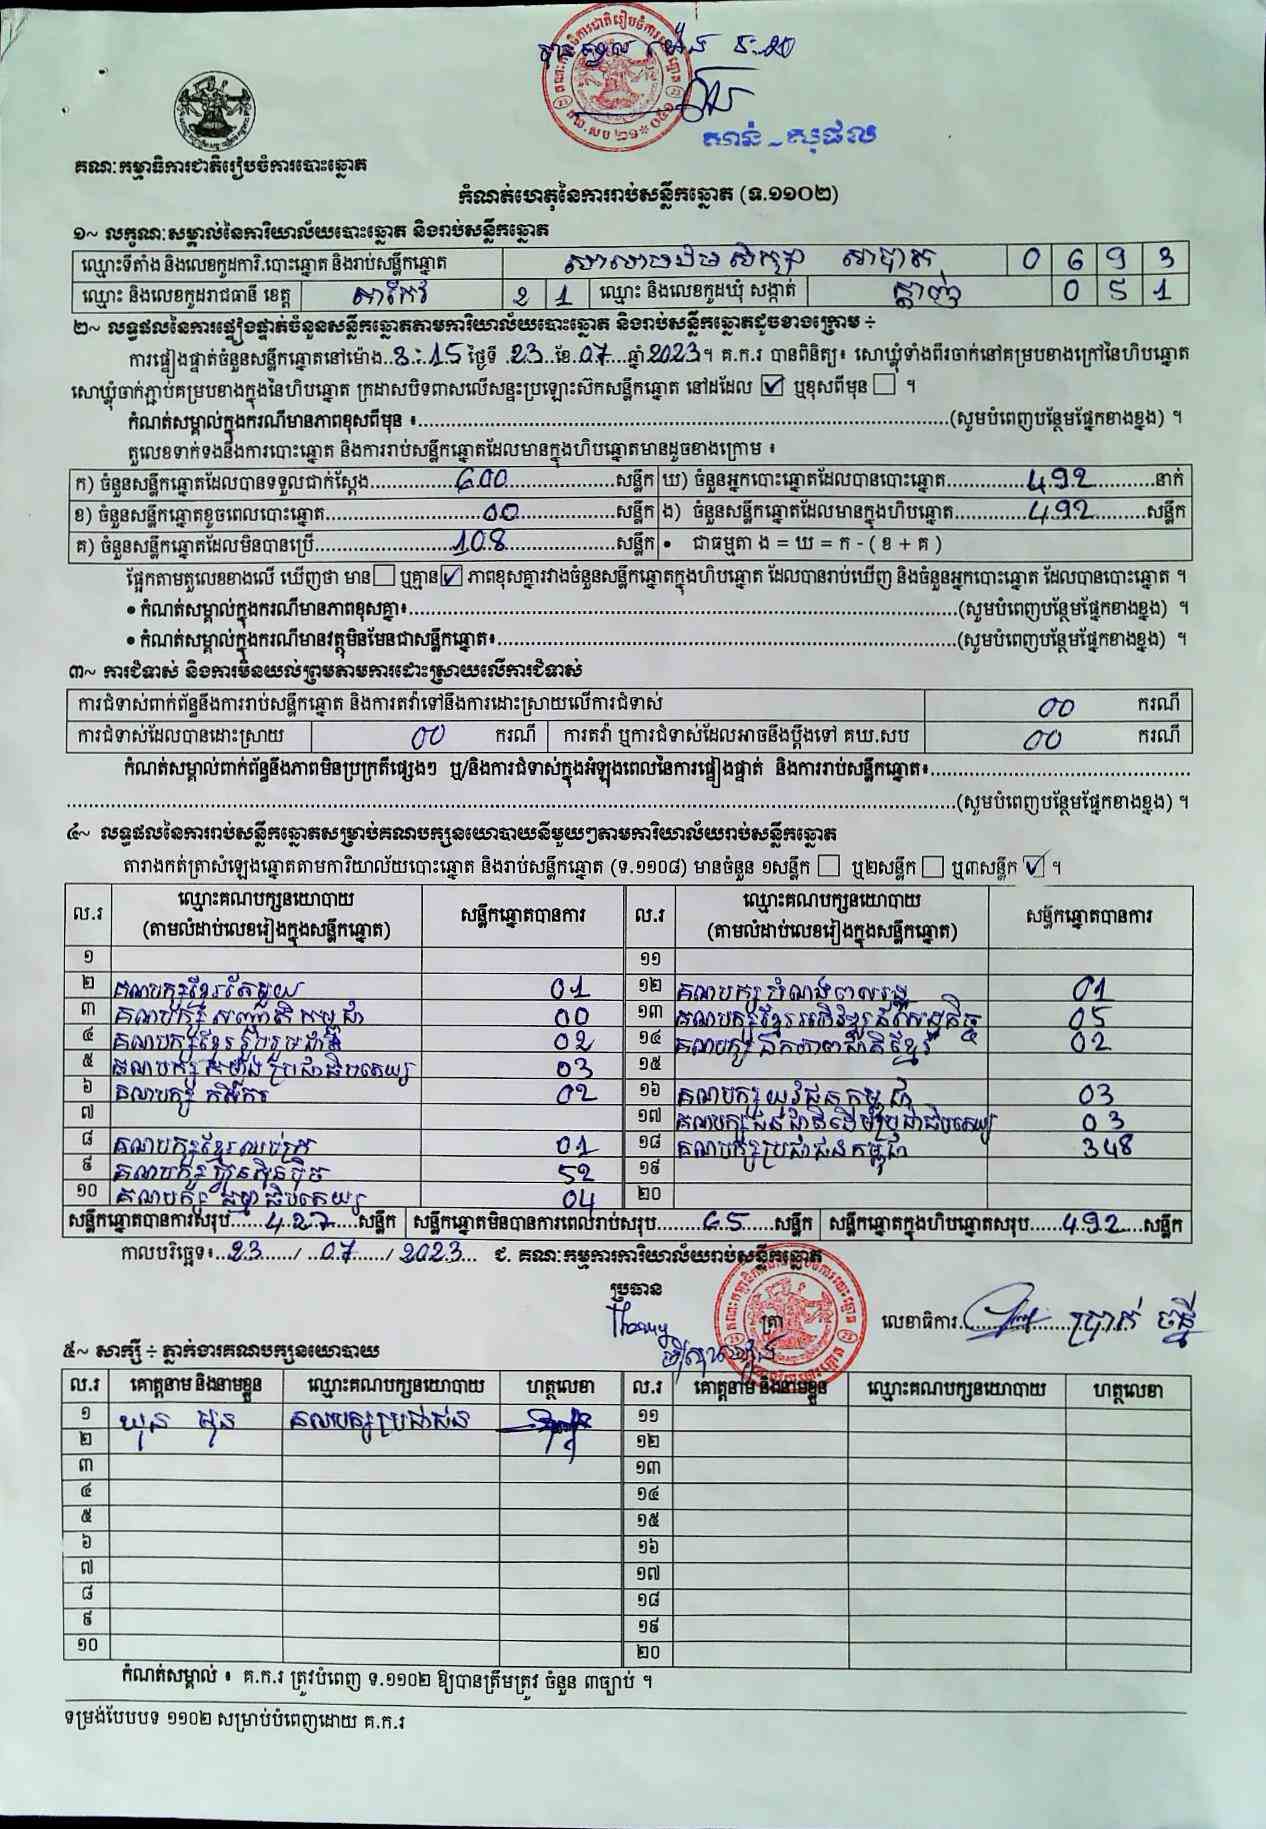 បានទទួល ម៉ោង ៩:២០
សាន់ - សុផល
គណៈកម្មាធិការជាតិរៀបចំការបោះឆ្នោត
កំណត់ហេតុនៃការរាប់សន្លឹកឆ្នោត (ទ.១១០២)
១~ លក្ខណៈសម្គាល់នៃការិយាល័យបោះឆ្នោត និងរាប់សន្លឹកឆ្នោត
ឈ្មោះទីតាំង និងលេខកូដការិ.បោះឆ្នោត និងរាប់សន្លឹកឆ្នោត 0 6 9 3
ឈ្មោះ និងលេខកូដរាជធានី ខេត្ត តាកែវ 2 1 ឈ្មោះ និងលេខកូដឃុំ សង្កាត់ 0 5 1
២~ លទ្ធផលនៃការផ្ទៀងផ្ទាត់ចំនួនសន្លឹកឆ្នោតតាមការិយាល័យបោះឆ្នោត និងរាប់សន្លឹកឆ្នោតដូចខាងក្រោម ÷
ការផ្ទៀងផ្ទាត់ចំនួនសន្លឹកឆ្នោតនៅម៉ោង..3:15 ថ្ងៃទី .23..ខែ.07...ឆ្នាំ2023។ គ.ក.រ បានពិនិត្យ៖ សោឃ្លុំទាំងពីរចាក់នៅគម្របខាងក្រៅនៃហិបឆ្នោត
សោឃ្លុំចាក់ភ្ជាប់គម្របខាងក្នុងនៃហិបឆ្នោត ក្រដាសបិទពាសលើសន្ទះប្រឡោះស៊កសន្លឹកឆ្នោត នៅដដែល ☑ ឬខុសពីមុន ☐ ។
កំណត់សម្គាល់ក្នុងករណីមានភាពខុសពីមុន ៖...........(សូមបំពេញបន្ថែមផ្នែកខាងខ្នង) ។
តួលេខទាក់ទងនឹងការបោះឆ្នោត និងការរាប់សន្លឹកឆ្នោតដែលមានក្នុងហិបឆ្នោតមានដូចខាងក្រោម ៖
ក) ចំនួនសន្លឹកឆ្នោតដែលបានទទួលជាក់ស្តែង......600......សន្លឹក ឃ) ចំនួនអ្នកបោះឆ្នោតដែលបានបោះឆ្នោត......492......នាក់
ខ) ចំនួនសន្លឹកឆ្នោតខូចពេលបោះឆ្នោត......00......សន្លឹក ង) ចំនួនសន្លឹកឆ្នោតដែលមានក្នុងហិបឆ្នោត......492......សន្លឹក
គ) ចំនួនសន្លឹកឆ្នោតដែលមិនបានប្រើ......108......សន្លឹក • ជាធម្មតា ង = ឃ = ក - ( ខ + គ )
ផ្អែកតាមតួលេខខាងលើ ឃើញថា មាន ☐ ឬគ្មាន ☑ ភាពខុសគ្នារវាងចំនួនសន្លឹកឆ្នោតក្នុងហិបឆ្នោត ដែលបានរាប់ឃើញ និងចំនួនអ្នកបោះឆ្នោត ដែលបានបោះឆ្នោត ។
• កំណត់សម្គាល់ក្នុងករណីមានភាពខុសគ្នា៖...........(សូមបំពេញបន្ថែមផ្នែកខាងខ្នង) ។
• កំណត់សម្គាល់ក្នុងករណីមានវត្ថុមិនមែនជាសន្លឹកឆ្នោត៖...........(សូមបំពេញបន្ថែមផ្នែកខាងខ្នង) ។
៣~ ការជំទាស់ និងការមិនយល់ព្រមតាមការដោះស្រាយលើការជំទាស់
ការជំទាស់ពាក់ព័ន្ធនឹងការរាប់សន្លឹកឆ្នោត និងការតវ៉ាទៅនឹងការដោះស្រាយលើការជំទាស់ 00 ករណី
ការជំទាស់ដែលបានដោះស្រាយ 00 ករណី ការតវ៉ា ឬការជំទាស់ដែលអាចនឹងប្តឹងទៅ គឃ.សប 00 ករណី
កំណត់សម្គាល់ពាក់ព័ន្ធនឹងភាពមិនប្រក្រតីផ្សេងៗ ឬ/និងការជំទាស់ក្នុងអំឡុងពេលនៃការផ្ទៀងផ្ទាត់ និងការរាប់សន្លឹកឆ្នោត៖...........
...........(សូមបំពេញបន្ថែមផ្នែកខាងខ្នង) ។
៤~ លទ្ធផលនៃការរាប់សន្លឹកឆ្នោតសម្រាប់គណបក្សនយោបាយនីមួយៗតាមការិយាល័យរាប់សន្លឹកឆ្នោត
តារាងកត់ត្រាសំឡេងឆ្នោតតាមការិយាល័យបោះឆ្នោត និងរាប់សន្លឹកឆ្នោត (ទ.១១០៨) មានចំនួន ១សន្លឹក ☐ ឬ២សន្លឹក ☐ ឬ៣សន្លឹក ☑ ។
ល.រ ឈ្មោះគណបក្សនយោបាយ (តាមលំដាប់លេខរៀងក្នុងសន្លឹកឆ្នោត) សន្លឹកឆ្នោតបានការ ល.រ ឈ្មោះគណបក្សនយោបាយ (តាមលំដាប់លេខរៀងក្នុងសន្លឹកឆ្នោត) សន្លឹកឆ្នោតបានការ
១ ១១
២ គណបក្សខ្មែរតែមួយ 01 ១២ គណបក្ស សំណង់ 01
៣ គណបក្ស សញ្ជាតិកម្ពុជា 00 ១៣ គណបក្សខ្មែរអភិវឌ្ឍន៍សេដ្ឋកិច្ច 05
៤ គណបក្សខ្មែររួបរួមជាតិ 02 ១៤ គណបក្ស ឯកភាពជាតិខ្មែរ 02
៥ គណបក្ស សំបុកឃ្មុំប្រជាធិបតេយ្យ 03 ១៥
៦ គណបក្ស កសិករ 02 ១៦ គណបក្ស យុវជនកម្ពុជា 03
៧ ១៧ គណបក្សជនជាតិដើមប្រជាធិបតេយ្យ 03
៨ គណបក្សខ្មែរឈប់ក្រ 01 ១៨ គណបក្សប្រជាជនកម្ពុជា 348
៩ គណបក្ស ហ៊្វុនស៊ិនប៉ិច 52 ១៩
១០ គណបក្ស ធម្មាធិបតេយ្យ 04 ២០
សន្លឹកឆ្នោតបានការសរុប......427....សន្លឹក សន្លឹកឆ្នោតមិនបានការពេលរាប់សរុប......65......សន្លឹក សន្លឹកឆ្នោតក្នុងហិបឆ្នោតសរុប......492....សន្លឹក
កាលបរិច្ឆេទ៖..23..../..07..../2023... ជ. គណៈកម្មការការិយាល័យរាប់សន្លឹកឆ្នោត
ប្រធាន ត្រា លេខាធិការ........ប្រាក់ ចន្នី
៥~ សាក្សី ÷ ភ្នាក់ងារគណបក្សនយោបាយ
ល.រ គោត្តនាម និងនាមខ្លួន ឈ្មោះគណបក្សនយោបាយ ហត្ថលេខា ល.រ គោត្តនាម និងនាមខ្លួន ឈ្មោះគណបក្សនយោបាយ ហត្ថលេខា
១ ឃុន អុន គណបក្សប្រជាជន ១១
២ ១២
៣ ១៣
៤ ១៤
៥ ១៥
៦ ១៦
៧ ១៧
៨ ១៨
៩ ១៩
១០ ២០
កំណត់សម្គាល់ ៖ គ.ក.រ ត្រូវបំពេញ ទ.១១០២ ឱ្យបានត្រឹមត្រូវ ចំនួន ៣ច្បាប់ ។
ទម្រង់បែបបទ ១១០២ សម្រាប់បំពេញដោយ គ.ក.រ